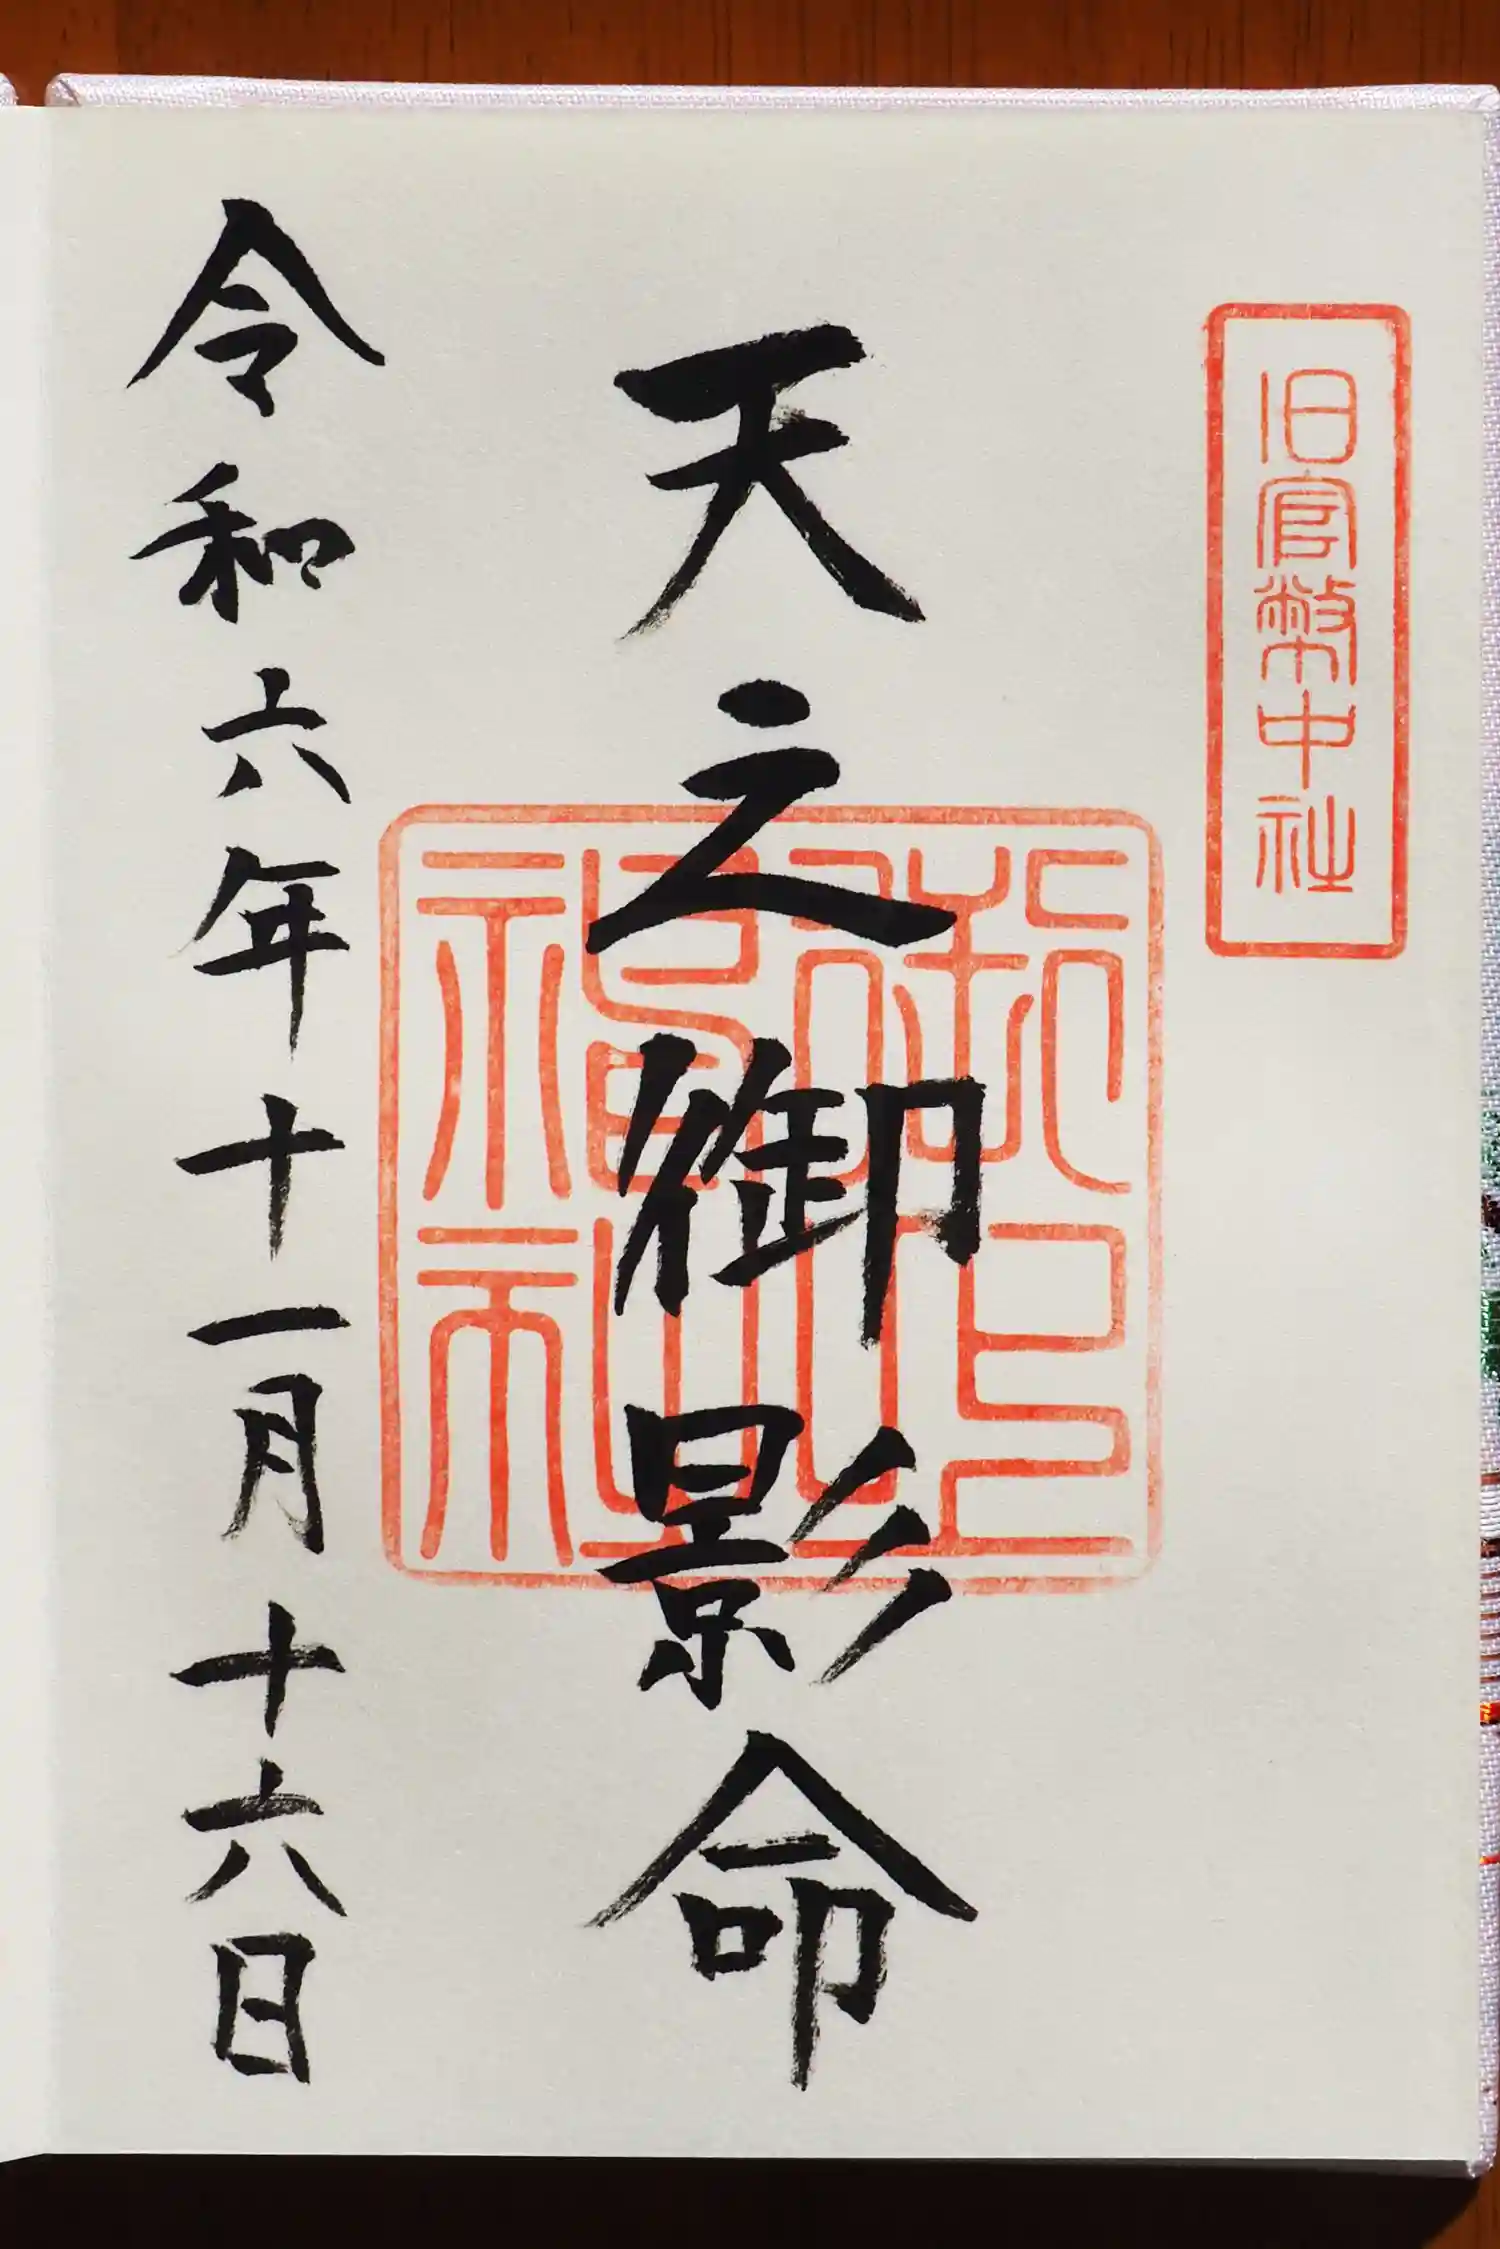 旧官幣中社
天之御影命
御上神社
令和六年十一月十六日